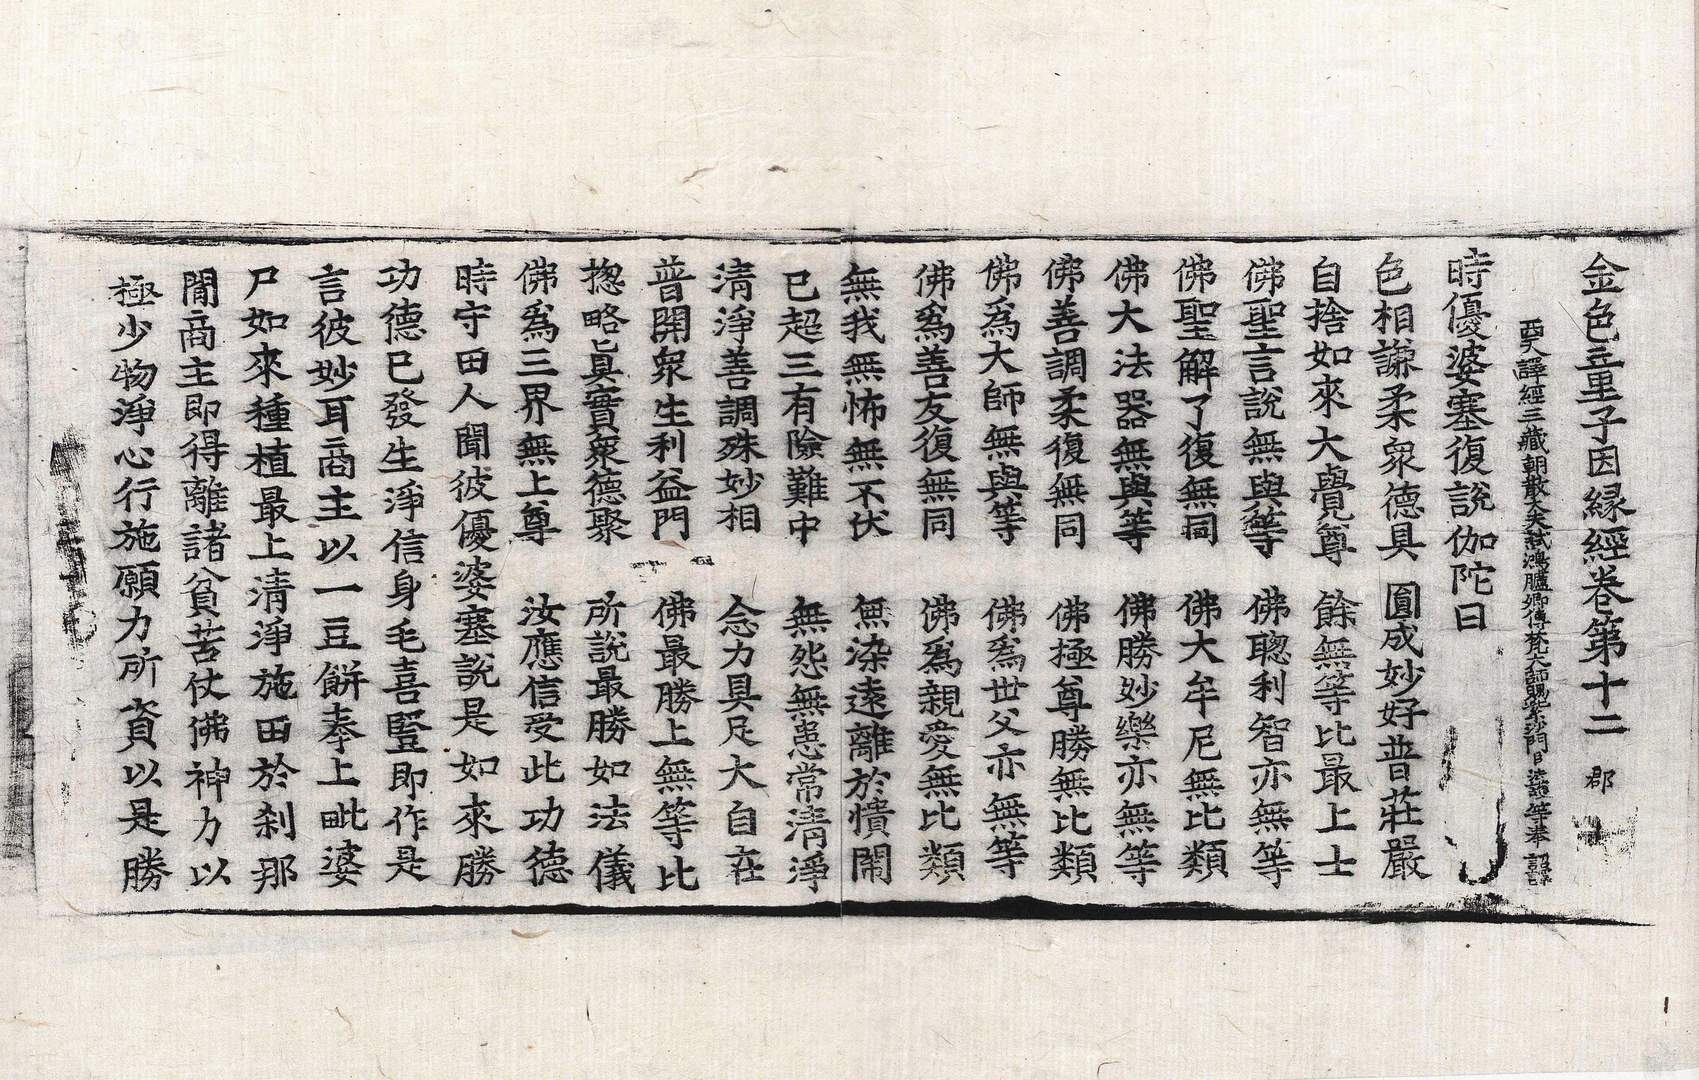 金色童子因緣經卷第十二　郡
西天譯經三藏朝散大夫試鴻臚卿傳梵大師賜紫沙門臣 等奉 詔譯
時優婆塞復說伽陀曰
色相謙柔衆德具　圓成妙好普莊嚴
自捨如來大覺尊　餘無等比最上士
佛聖言說無與等　佛聰利智亦無等
佛聖解了復無同　佛大牟尼無比類
佛大法器無與等　佛勝妙樂亦無等
佛善調柔復無同　佛極尊勝無比類
佛爲大師無與等　佛爲世父亦無等
佛爲善友復無同　佛爲親愛無比類
無我無怖無不伏　無染遠離於憒閙
已超三有險難中　無怨無恚常清淨
清淨善調殊妙相　念力具足大自在
普開衆生利益門　佛最勝上無等比
揔略眞實衆德聚　所說最勝如法儀
佛爲三界無上尊　汝應信受此功德
時守田人聞彼優婆塞說是如來勝
功德已發生淨信身毛喜豎即作是
言彼妙耳商主以一豆餠奉上毗婆
尸如來種植最上清淨施田於刹那
閒商主即得離諸貧苦仗佛神力以
極少物淨心行施願力所資以是勝